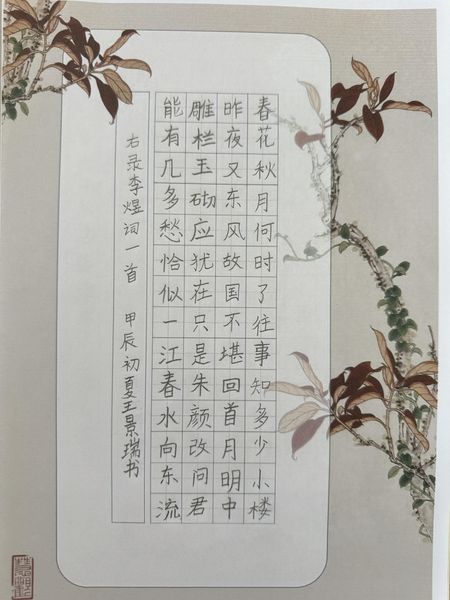 春花秋月何时了往事知多少小楼
昨夜又东风故国不堪回首月明中
雕栏玉砌应犹在只是朱颜改问君
能有几多愁恰似一江春水向东流
右录李煜词一首 甲辰初夏王景瑞书